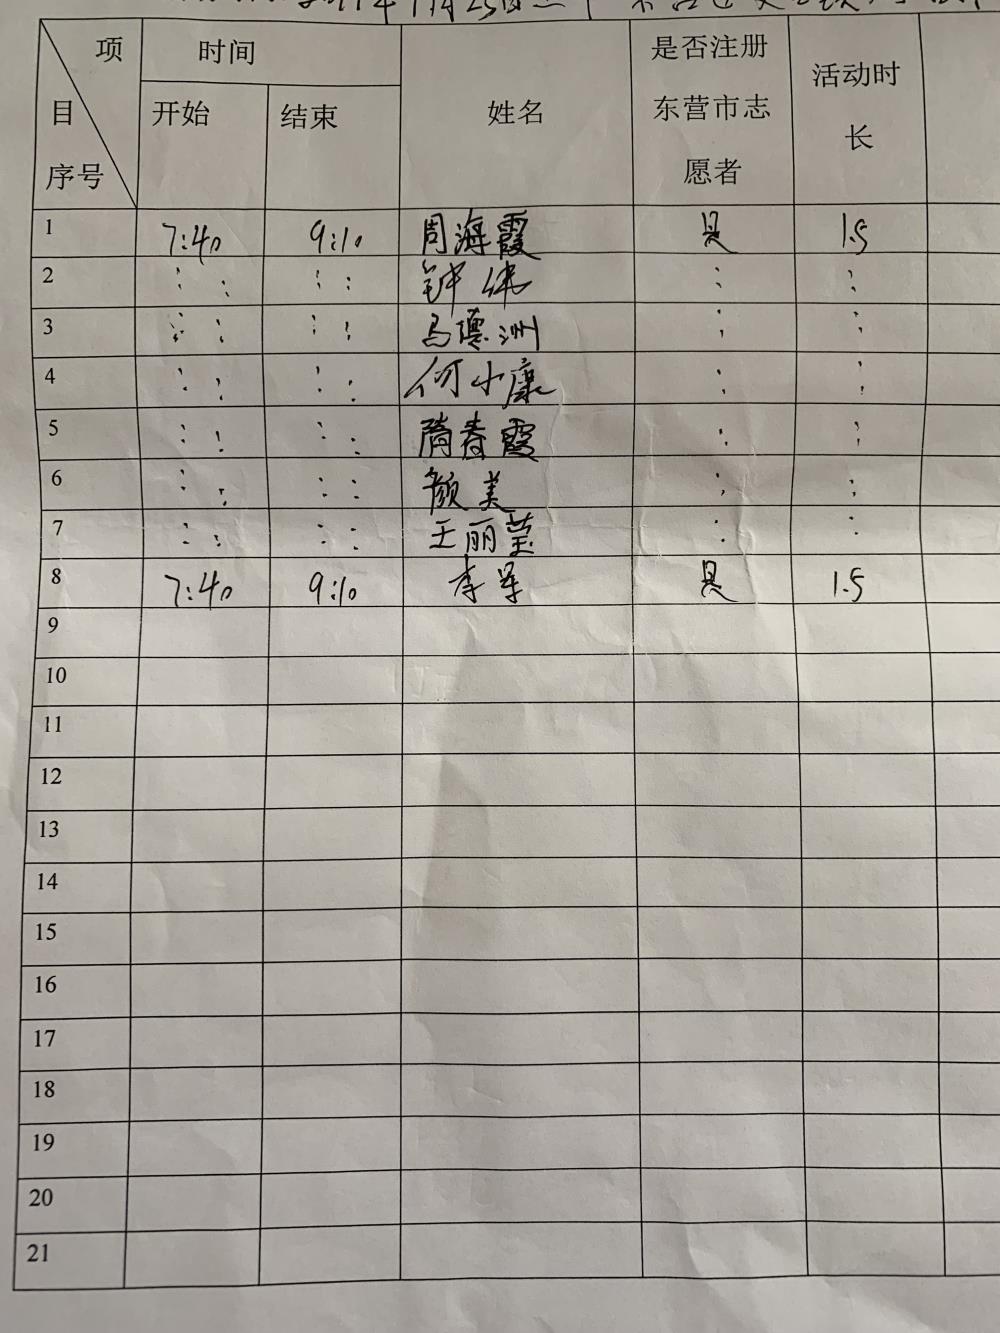 项 时间 是否注册
目 开始 结束 姓名 东营市志 活动时
序号 愿者 长
1 7:40 9:10 周海霞 是 1.5
2 : : : : 钟纬 : :
3 : : : : 马德洲 : :
4 : : : : 何小康 : :
5 : : : : 隋春霞 : :
6 : : : : 颜美 : :
7 : : : : 王丽莹 : :
8 7:40 9:10 李军 是 1.5
9
10
11
12
13
14
15
16
17
18
19
20
21